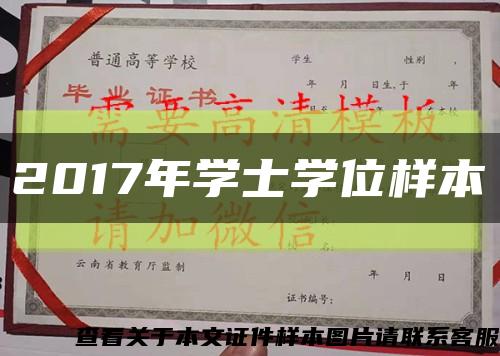 普通高等学校
毕业证书
学生 性别 ,
年 月 日生,于 年
需要高清模板
2017年学士学位样本
请加微信
云南省教育厅监制
年 月 日
证书编号:
查看关于本文证件样本图片请联系客服